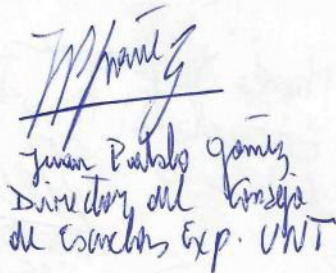 Juan Pablo Gómez
Director del Consejo
de Escuelas Exp. UNT